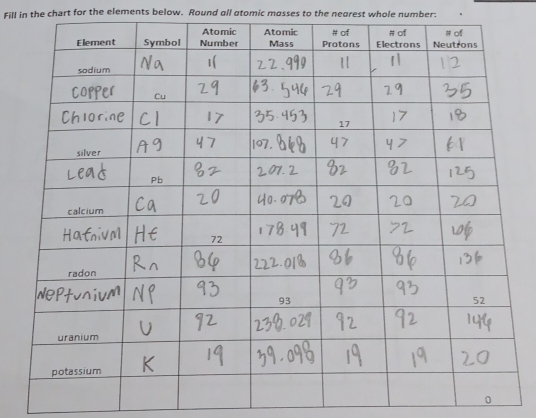 Fill in the chart for the elements below. Round all atomic masses to the nearest whole number:
Element Symbol Atomic Number Atomic Mass # of Protons # of Electrons # of Neutrons
sodium Na 11 22.990 11 11 12
Copper Cu 29 63.546 29 29 35
Chlorine Cl 17 35.453 17 17 18
silver Ag 47 107.868 47 47 61
Lead Pb 82 207.2 82 82 125
calcium Ca 20 40.078 20 20 20
Hafnium Hf 72 178.49 72 72 106
radon Rn 86 222.018 86 86 136
Neptunium NP 93 93 93 93 52
uranium U 92 238.029 92 92 146
potassium K 19 39.098 19 19 20
0